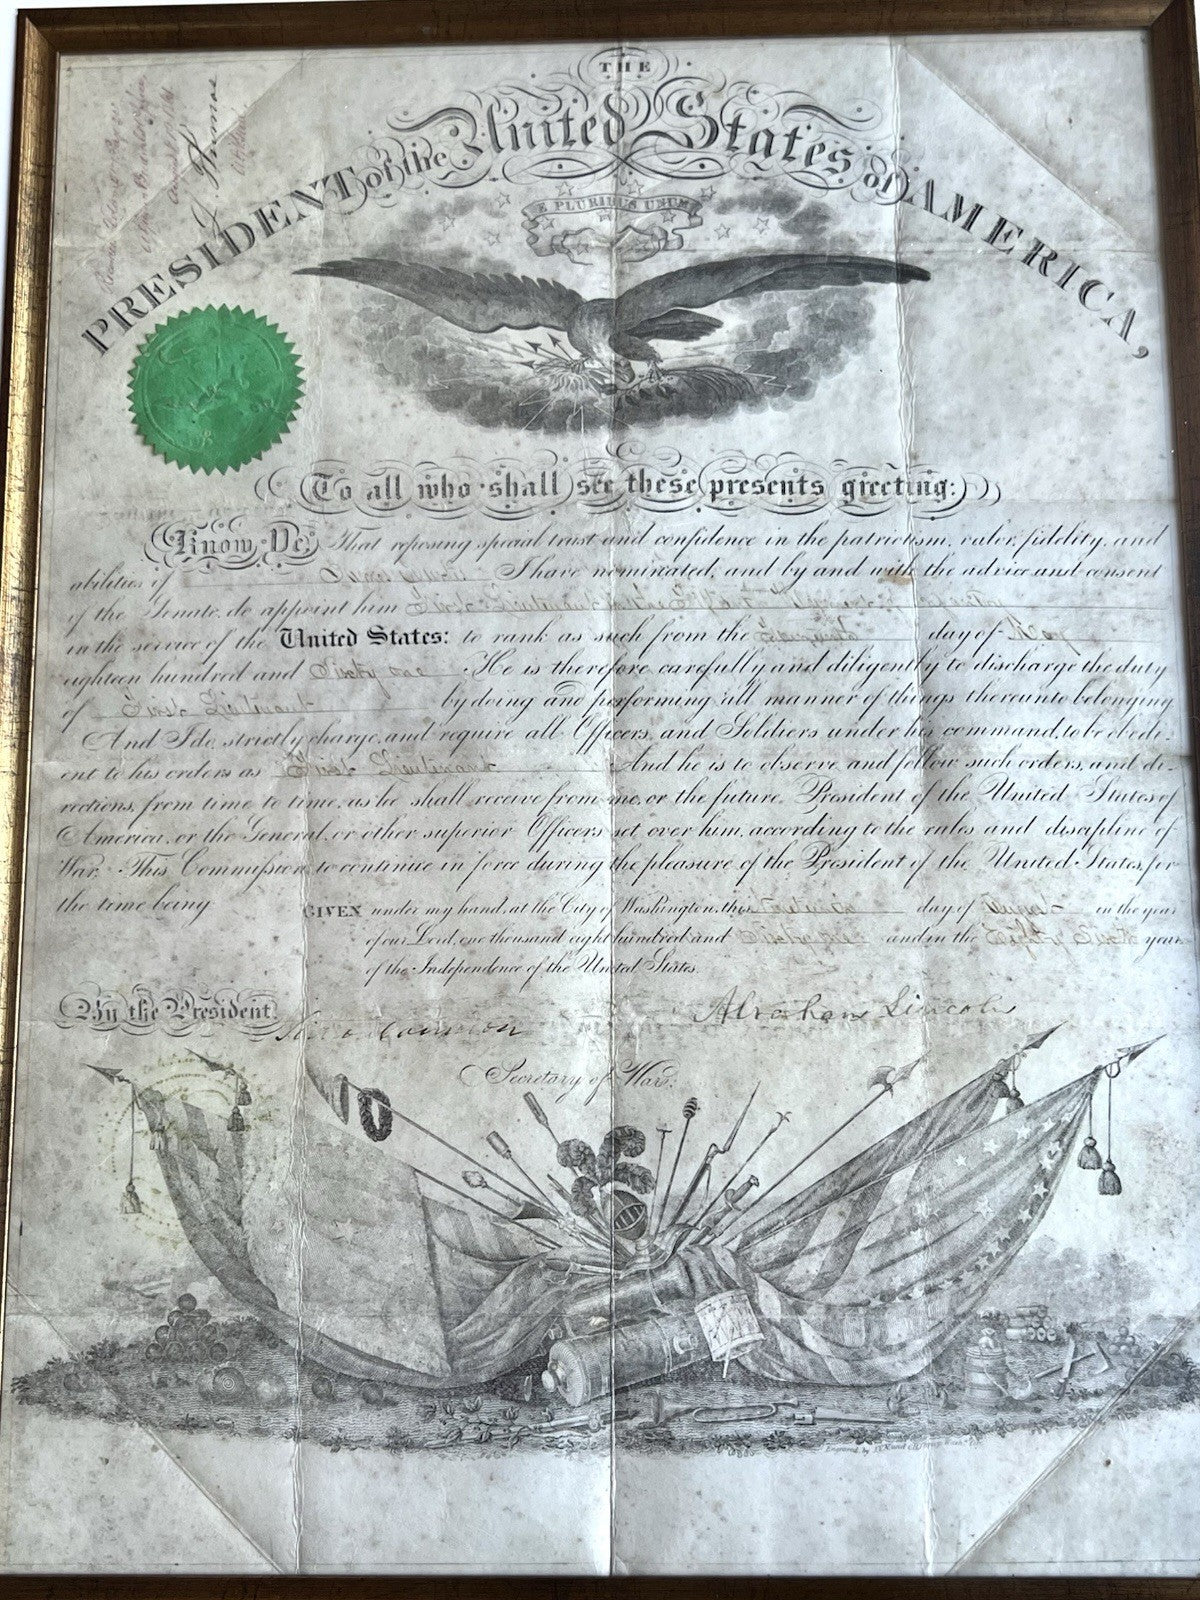 J. Thomas
THE
PRESIDENT of the United States of AMERICA,
E PLURIBUS UNUM
To all who shall see these presents greeting:
Know Ye, That reposing special trust and confidence in the patriotism, valor, fidelity, and
abilities of I have nominated, and by and with the advice and consent
of the Senate, do appoint him First Lieutenant in the Infantry
in the service of the United States: to rank as such from the day of May
eighteen hundred and Sixty one He is therefore carefully and diligently to discharge the duty
of First Lieutenant by doing and performing all manner of things thereunto belonging.
And I do strictly charge, and require all Officers, and Soldiers under his command, to be obedi-
ent to his orders as First Lieutenant And he is to observe and follow such orders, and di-
rections, from time to time, as he shall receive from me, or the future President of the United States of
America, or the General, or other superior Officers set over him, according to the rules and discipline of
War. This Commission to continue in force during the pleasure of the President of the United States, for
the time being
GIVEN under my hand, at the City of Washington, this day of August in the year
of our Lord, one thousand eight hundred and Sixty one and in the Eighty Sixth year
of the Independence of the United States.
By the President Abraham Lincoln
Simon Cameron
Secretary of War.
Engraved by